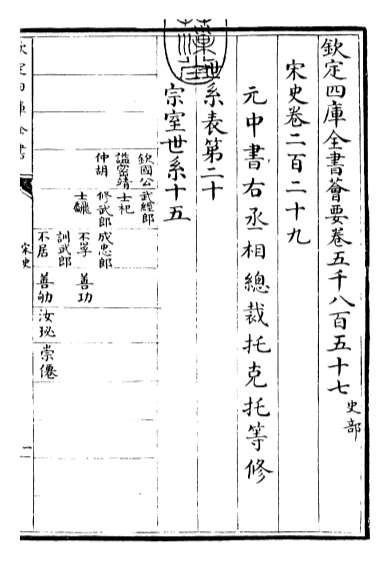 欽定四庫全書㑹要卷五千八百五十七
史部
宋史卷二百二十九
元中書右丞相總裁托克托等修
世系表第二十
宗室世系十五
欽國公武經郎
諡密靖士祀
仲胡 修武郎成忠郎
不孚 善功
訓武郎
不居 善劬 汝玜 崇僊
欽定四庫全書
宋史
一